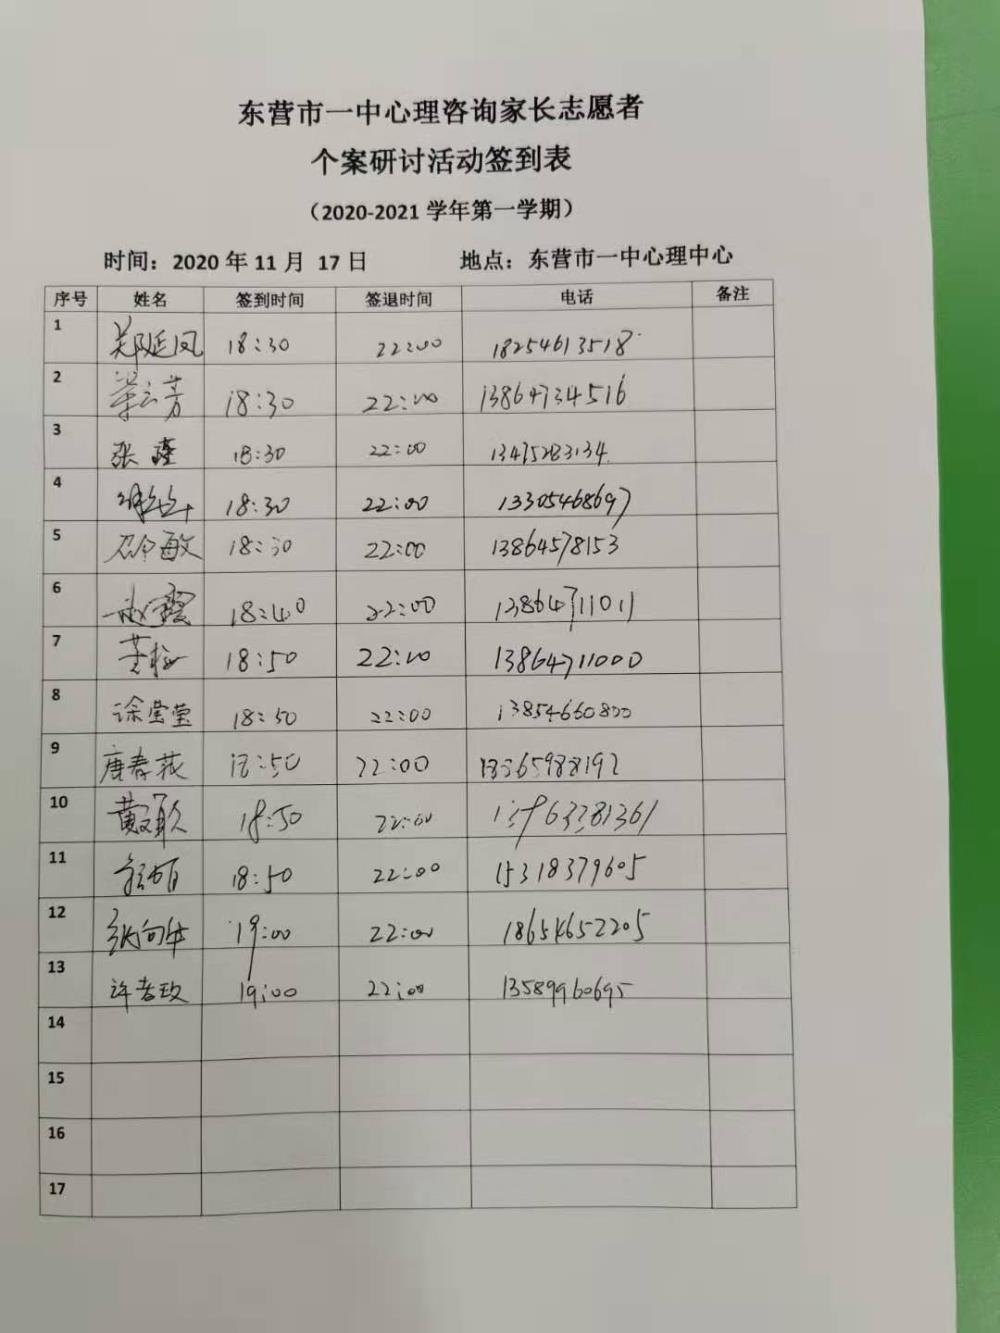 东营市一中心理咨询家长志愿者
个案研讨活动签到表
（2020-2021 学年第一学期）
时间：2020 年 11 月 17 日 地点：东营市一中心理中心
序号 姓名 签到时间 签退时间 电话 备注
1 郑延凤 18:30 22:00 18254613518
2 梁云芳 18:30 22:00 13864734516
3 张 18:30 22:00 13475283134
4 18:30 22:00 13305468697
5 邵敏 18:30 22:00 13864578153
6 赵霞 18:40 22:00 13864711011
7 18:50 22:00 13864711000
8 徐莹莹 18:50 22:00 13854660800
9 唐春荻 18:50 22:00 18365988192
10 黄 18:50 22:00
11 18:50 22:00 15318379605
12 张向华 19:00 22:00 18654652205
13 许孝玫 19:00 22:00 13589960695
14
15
16
17